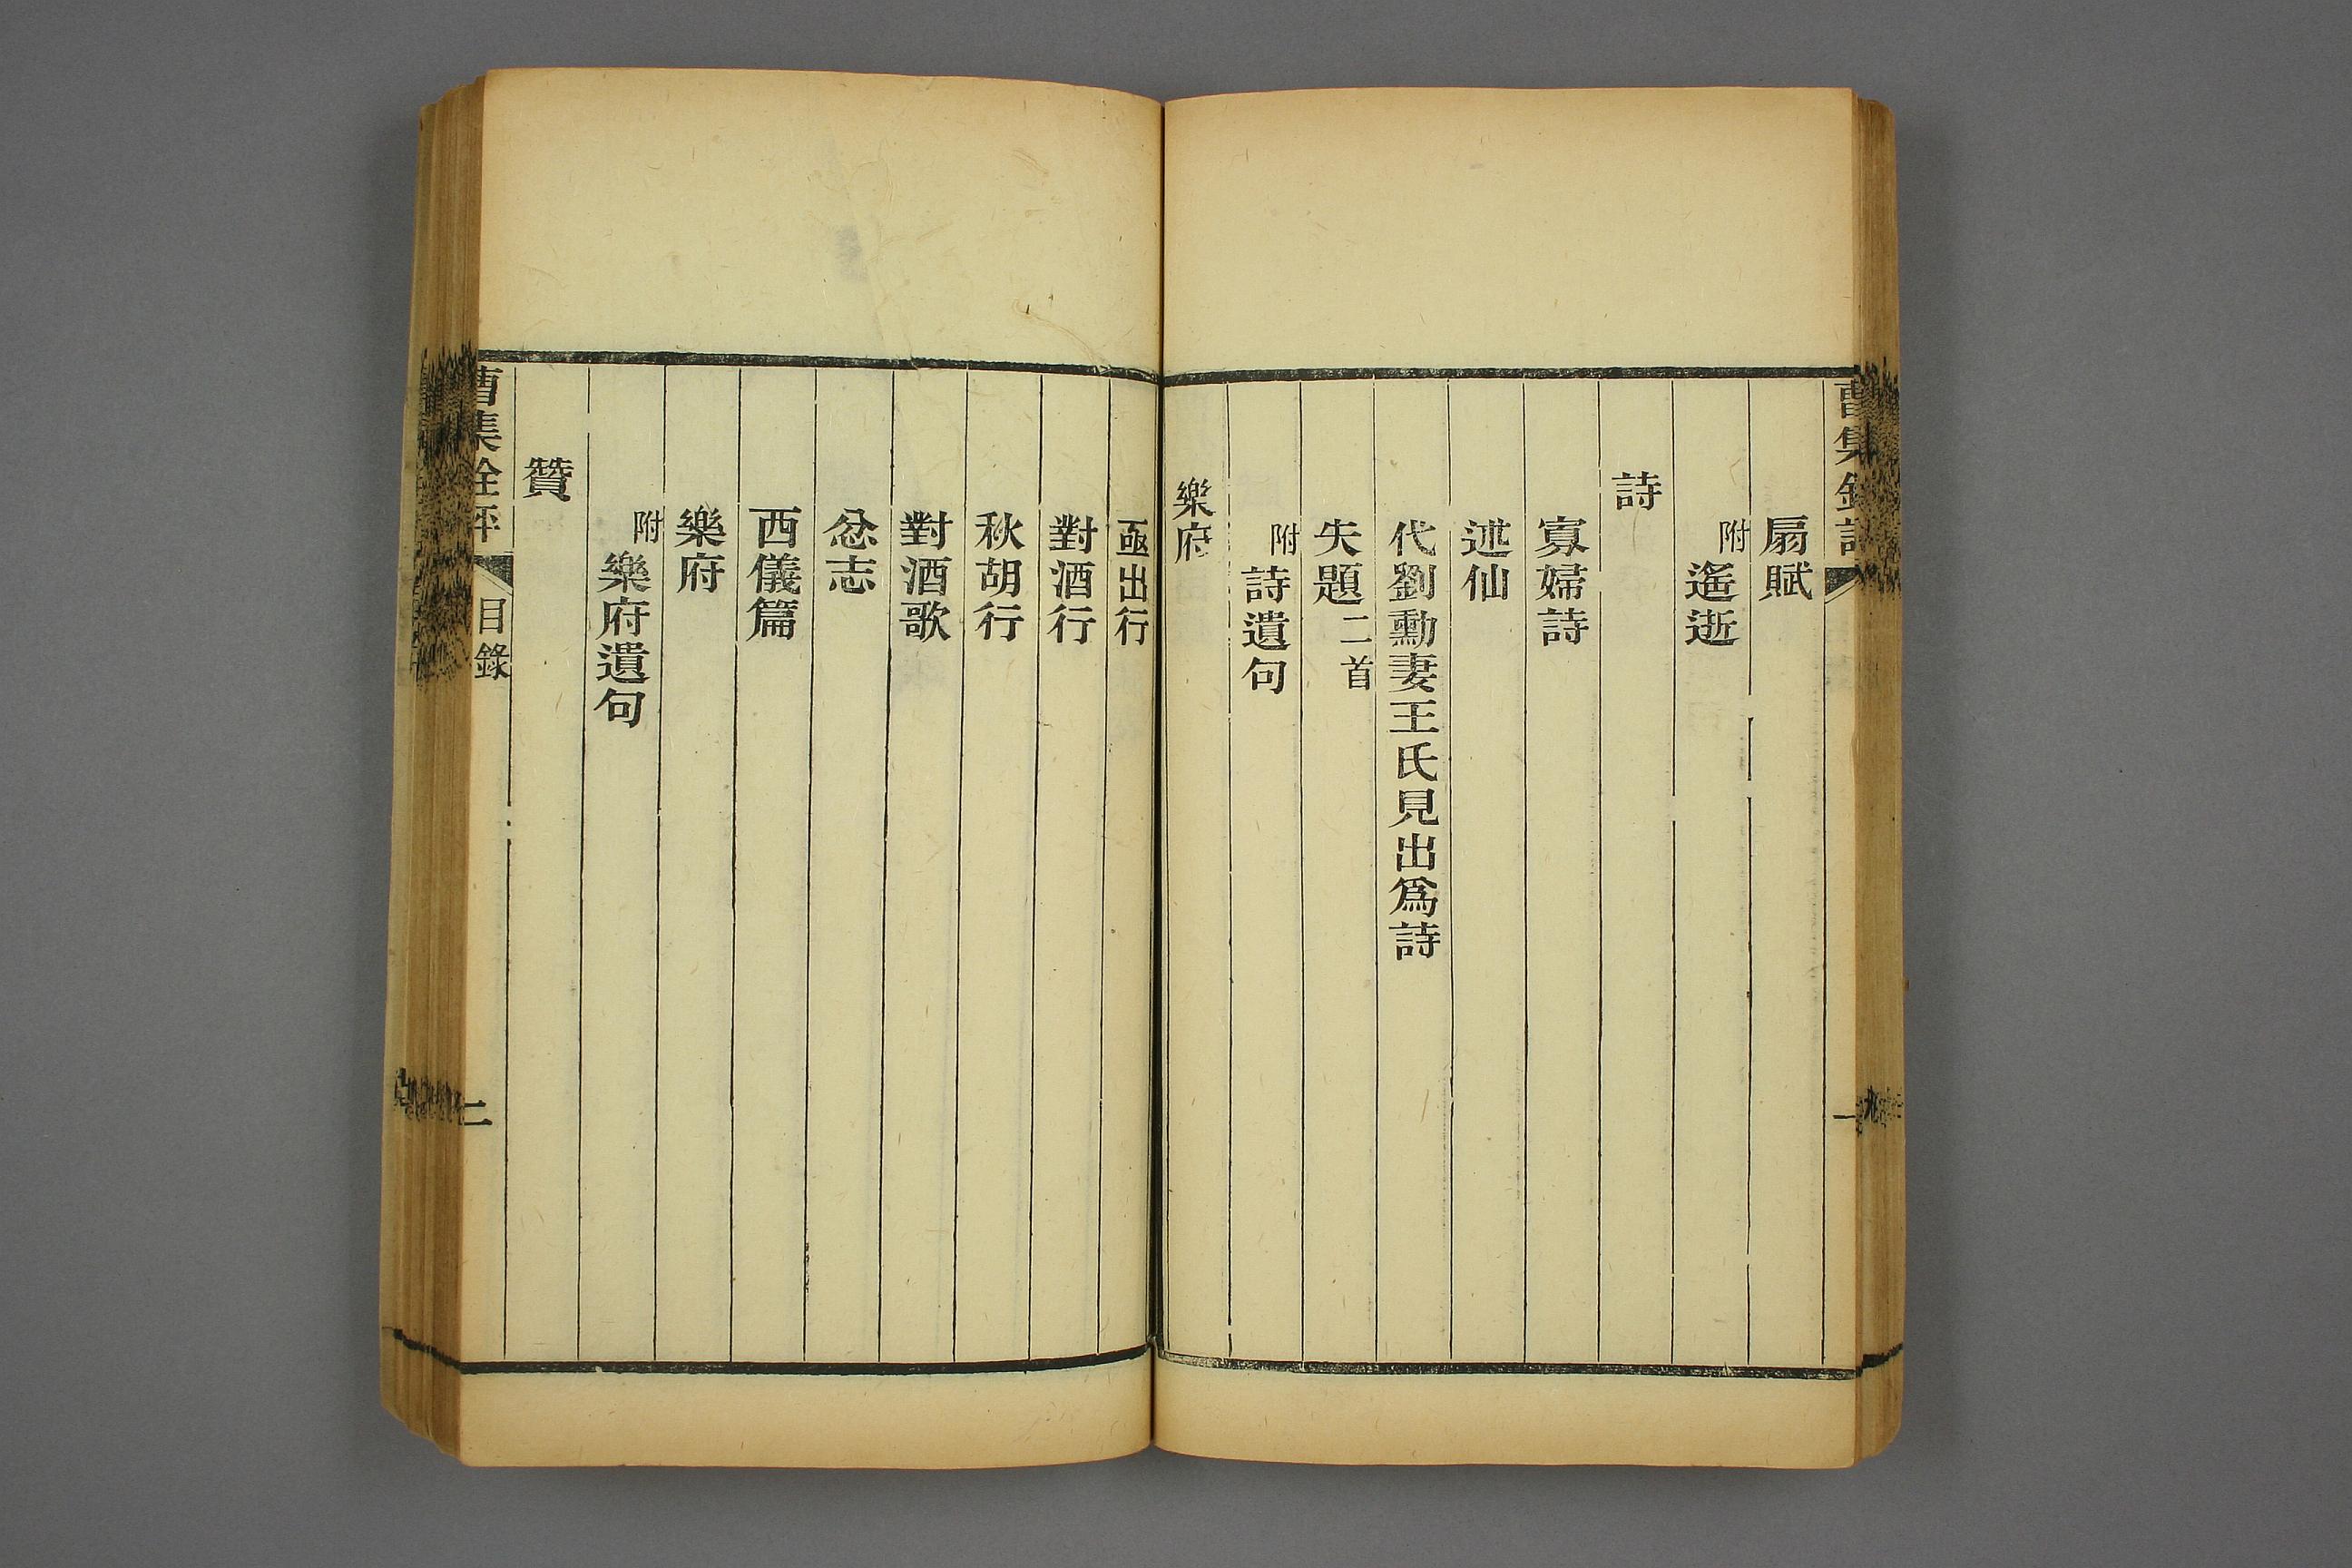 扇賦
附遙逝
詩
寡婦詩
述仙
代劉勳妻王氏見出爲詩
失題二首
附詩遺句
樂府
亟出行
對酒行
秋胡行
對酒歌
忿志
西儀篇
樂府
附樂府遺句
贊
曹集詮評 目錄 二